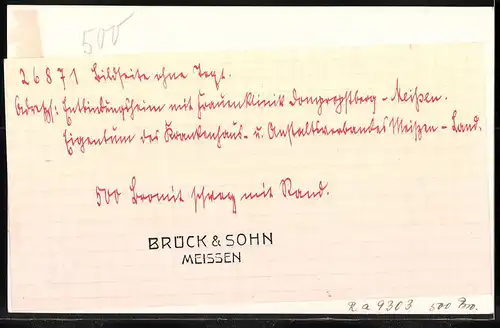 500
26871 Bildseite ohne Text.
Adresss: Entbindungsheim mit Frauenklinik Dompropstberg - Meißen.
Eigentum des Krankenhaus- u. Anstaltsverbandes Meißen - Land.
500 Bromit schwz mit Rand.
BRÜCK & SOHN
MEISSEN
R a 9303 500 Bro.